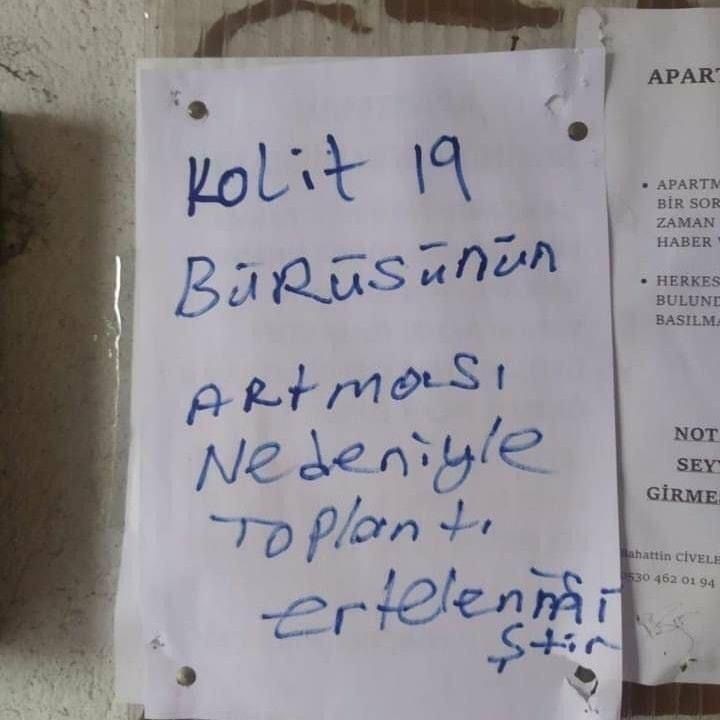 Kolit 19
BÜRÜSÜNÜN
ARtması
Nedeniyle
Toplantı
ertelenmi
ştir
APART
• APARTM
BİR SOR
ZAMAN
HABER
• HERKES
BULUND
BASILMA
NOT
SEYY
GİRME
Bahattin CİVELE
0530 462 01 94